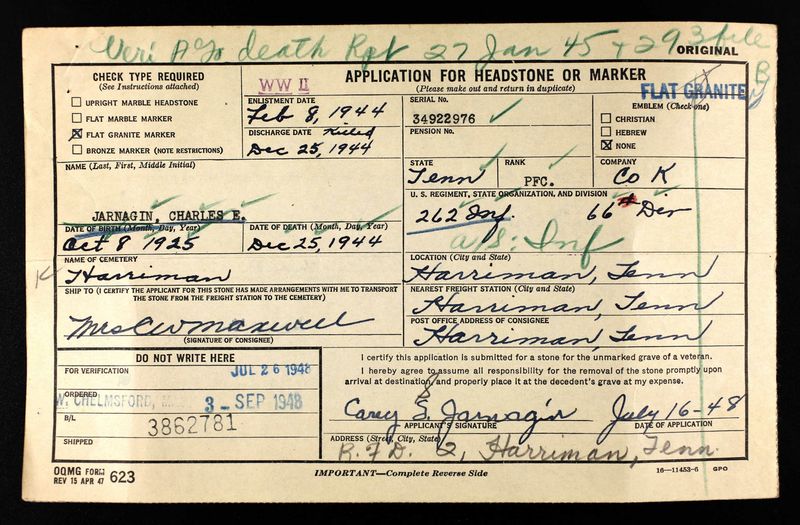 Veri AGO death Rpt 27 Jan 45 + 293 file
B
ORIGINAL
CHECK TYPE REQUIRED
(See Instructions attached)
UPRIGHT MARBLE HEADSTONE
FLAT MARBLE MARKER
FLAT GRANITE MARKER
BRONZE MARKER (NOTE RESTRICTIONS)
WW II
ENLISTMENT DATE
Feb 8, 1944
DISCHARGE DATE Killed
Dec 25, 1944
APPLICATION FOR HEADSTONE OR MARKER
(Please make out and return in duplicate)
FLAT GRANITE
SERIAL No.
34922976
PENSION No.
EMBLEM (Check one)
CHRISTIAN
HEBREW
NONE
NAME (Last, First, Middle Initial)
JARNAGIN, CHARLES E.
STATE
Tenn
RANK
PFC.
COMPANY
Co K
U. S. REGIMENT, STATE ORGANIZATION, AND DIVISION
262 Inf. 66th Div
A/S: Inf
DATE OF BIRTH (Month, Day, Year)
Oct 8 1925
DATE OF DEATH (Month, Day, Year)
Dec 25, 1944
NAME OF CEMETERY
Harriman
LOCATION (City and State)
Harriman, Tenn
SHIP TO (I CERTIFY THE APPLICANT FOR THIS STONE HAS MADE ARRANGEMENTS WITH ME TO TRANSPORT
THE STONE FROM THE FREIGHT STATION TO THE CEMETERY)
Mrs C W Maxwell
(SIGNATURE OF CONSIGNEE)
NEAREST FREIGHT STATION (City and State)
Harriman, Tenn
POST OFFICE ADDRESS OF CONSIGNEE
Harriman, Tenn
DO NOT WRITE HERE
FOR VERIFICATION
JUL 26 1948
ORDERED
W. CHELMSFORD,
3 - SEP 1948
B/L
3862781
SHIPPED
I certify this application is submitted for a stone for the unmarked grave of a veteran.
I hereby agree to assume all responsibility for the removal of the stone promptly upon
arrival at destination, and properly place it at the decedent's grave at my expense.
Carey S. Jarnagin July 16-48
APPLICANT'S SIGNATURE
DATE OF APPLICATION
ADDRESS (Street, City, State)
R.F.D. 2, Harriman, Tenn.
OQMG FORM
REV 15 APR 47 623
IMPORTANT—Complete Reverse Side
16—11453-6 GPO